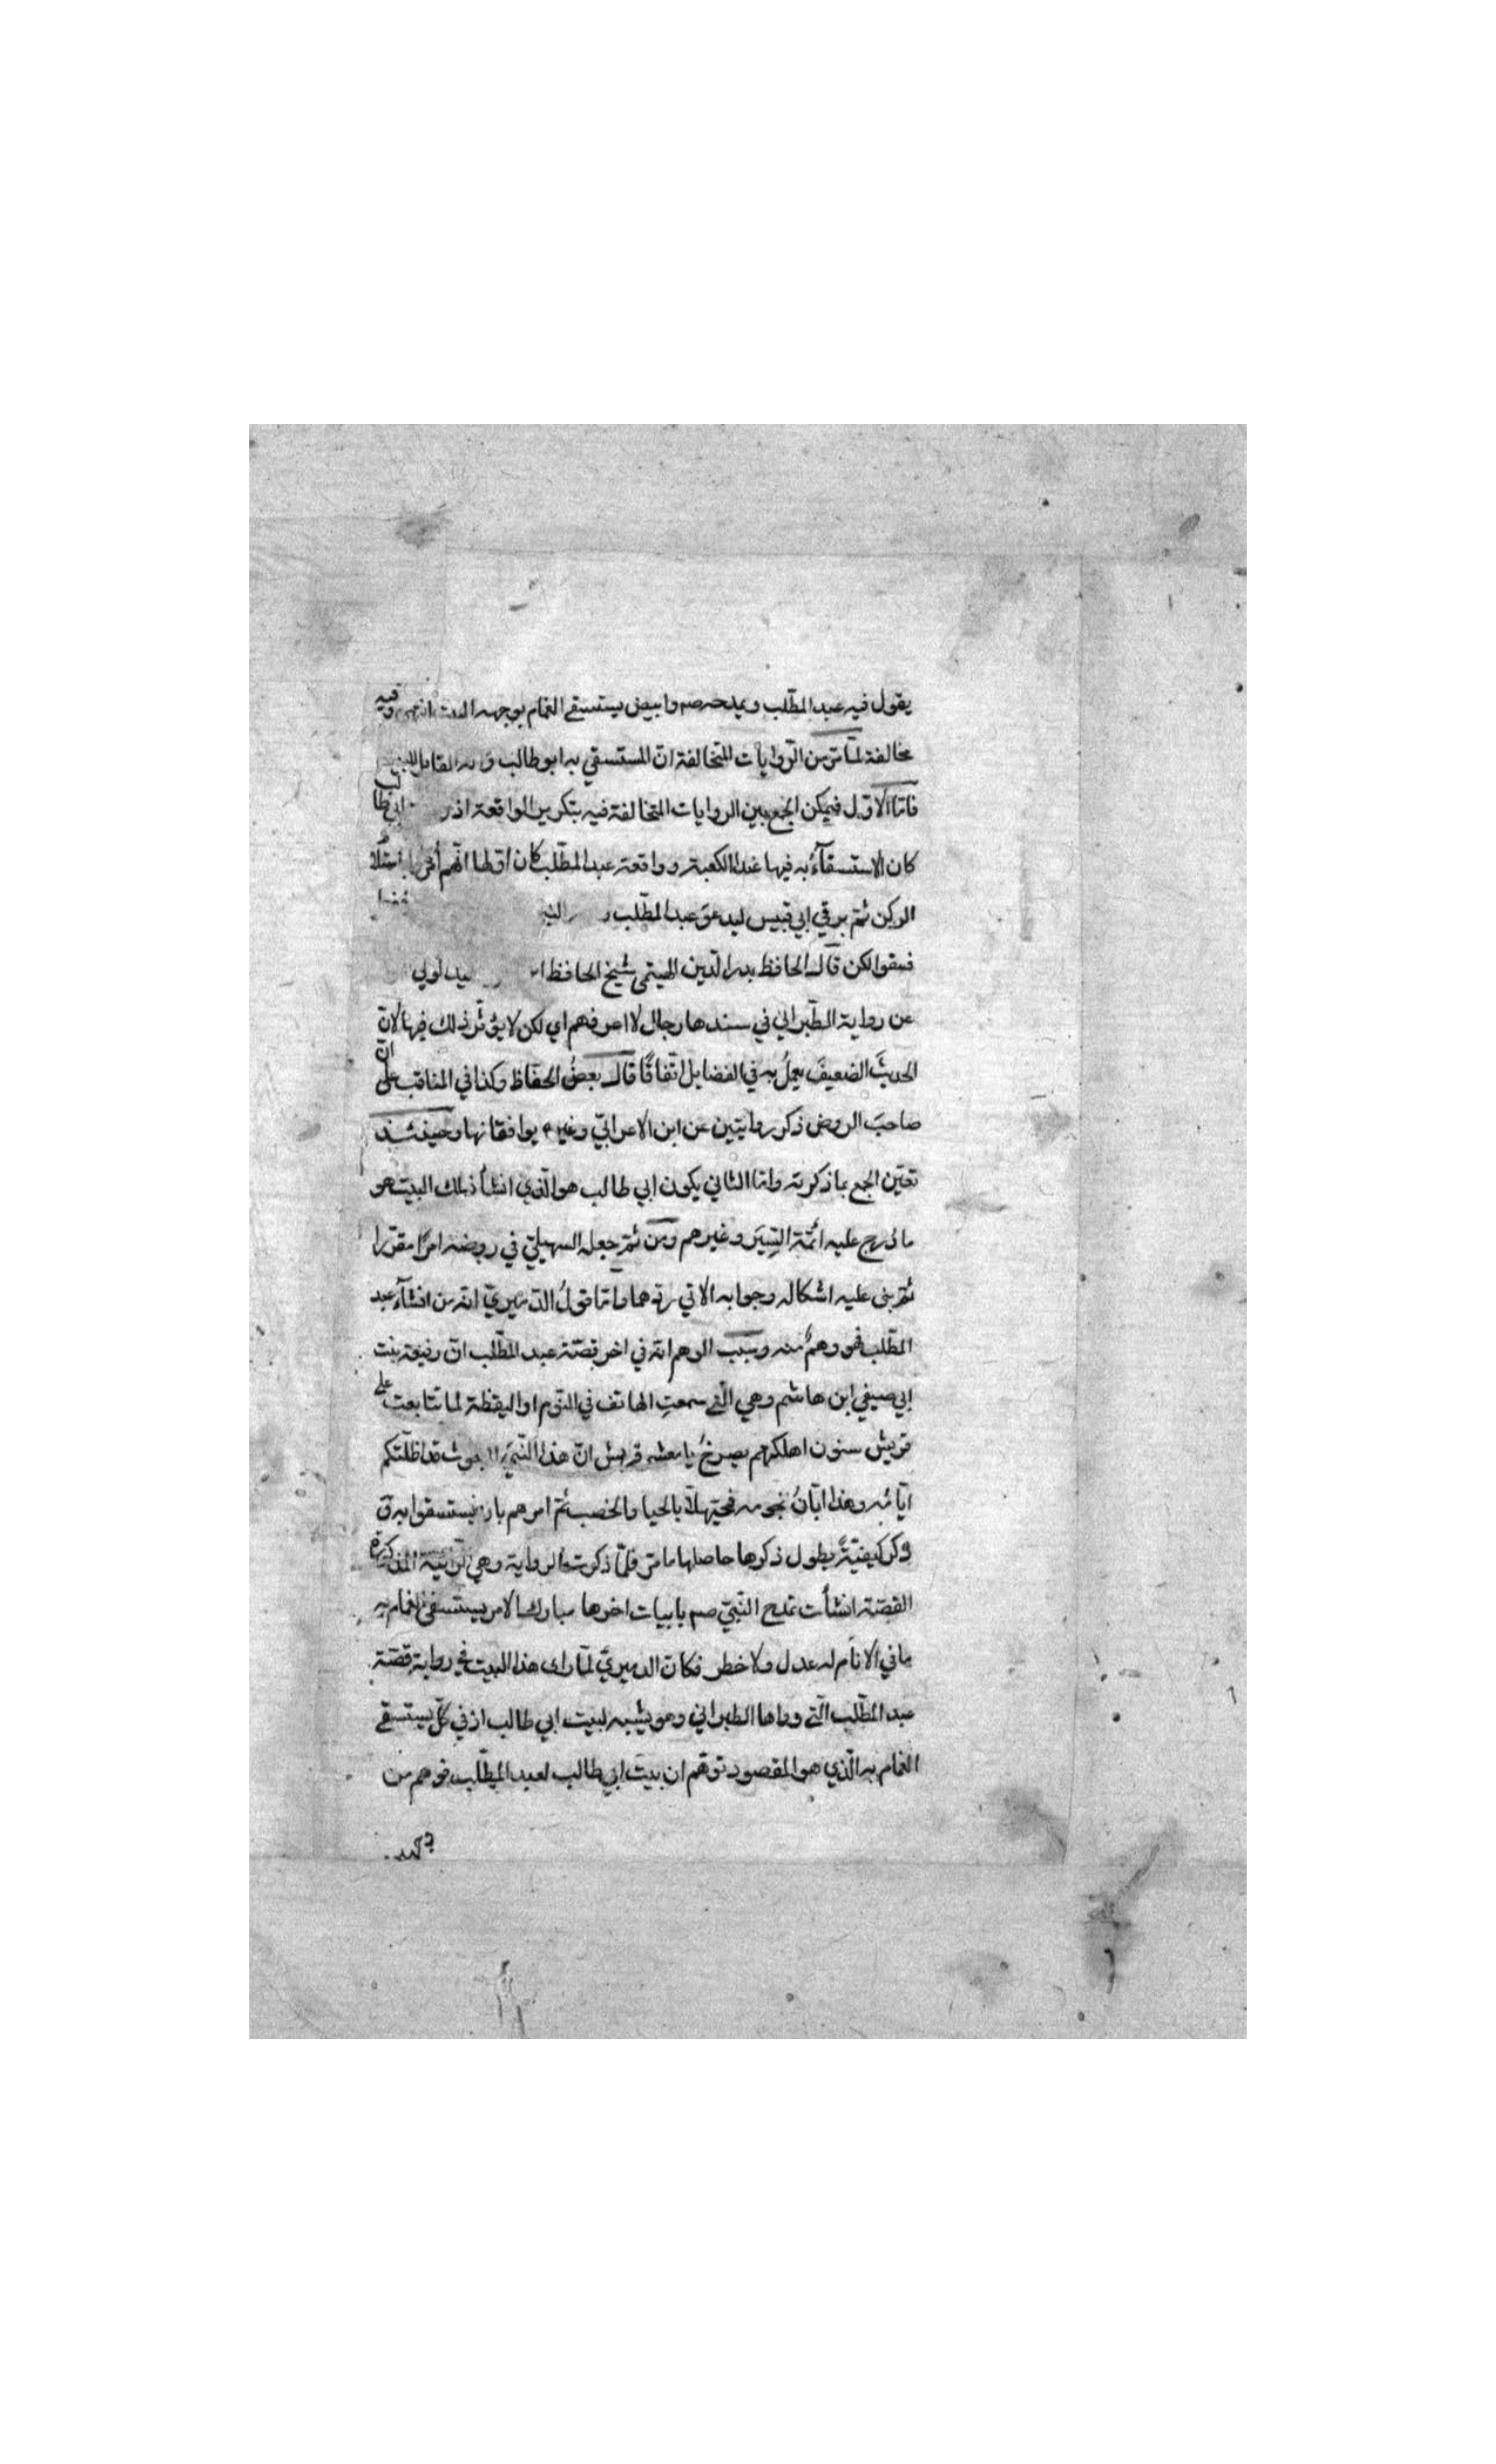 يقول فيه عبد المطّلب ويمدحه صم وابيض يستسقى الغمام بوجهه البيت انتهى وفيه
مخالفة لما مرّ من الرّوايات المتخالفة انّ المستسقي به ابو طالب و القايل للبيت
فامّا الاوّل فيمكن الجمع بين الروايات المتخالفة فيه بتكرير الواقعة اذ ابي طالب
كان الاستسقآء به فيها عند الكعبة وواقعة عبد المطّلب كان اوّلها انّهم
الركن ثمّ برقي ابي قبيس ليدعو عبد المطّلب
فسقوا لكن قال الحافظ بدر الدّين الهيتمى شيخ الحافظ
عن رواية الطّبراني في سندها رجال لا اعرفهم اي لكن لا يؤثّر ذلك فيها لانّ
الحديثَ الضعيفَ يعملُ به في الفضايل اتّفاقًا قال بعضُ الحفّاظ وكذا في المناقب على انّ
صاحبَ الروض ذكر روايتين عن ابن الاعرابيّ وغيره يوافقانها وحينئذ
تعيّن الجمع بما ذكرته وامّا الثاني يكون ابي طالب هو الّذي انشأ ذلك البيت هو
ما درج عليه ائمّة السِّيَر وغيرهم ومن ثمّ جعله السهيليّ في روضه امرًا مقرّرا
ثمّ بنى عليه اشكاله وجوابه الاتي ردّهما وامّا قولُ الدّميريّ انّه من انشآء عبد
المطّلب فهو وهمٌ منه وسبب الوهم انّه في اخر قصّة عبد المطّلب انّ رفيعة بنت
ابي صيفي ابن هاشم وهي الّتي سمعتِ الهاتف في النّوم او اليقظة لما تتابعت على
قريش سنون اهلكتهم يصرخُ يا معشر قريش انّ هذا النّبيّ المبعوث قد اظلّتكم
ايّامُه وهذا ابّانُ نجومه فحيّهلاّ بالحيا والخصب ثمّ امرهم بان يستسقوا به و
ذكر كيفيّةً يطول ذكرها حاصلها ما مرّ فلمّا ذكرت الرواية وهي المذكورة
القصّة انشأت تمدح النّبيّ صم بابيات اخرها مبارك الامر يستسقى الغمام به
ما في الانام له عدل ولا خطر فكانّ الدميريّ لمّا راى هذا البيت في رواية قصّة
عبد المطّلب الّتي رواها الطبراني وهو يشبه لبيت ابي طالب اذ في كلّ يستسقى
الغمام به الّذي هو المقصود توهّم ان بيت ابي طالب لعبد المطّلب فوهم من